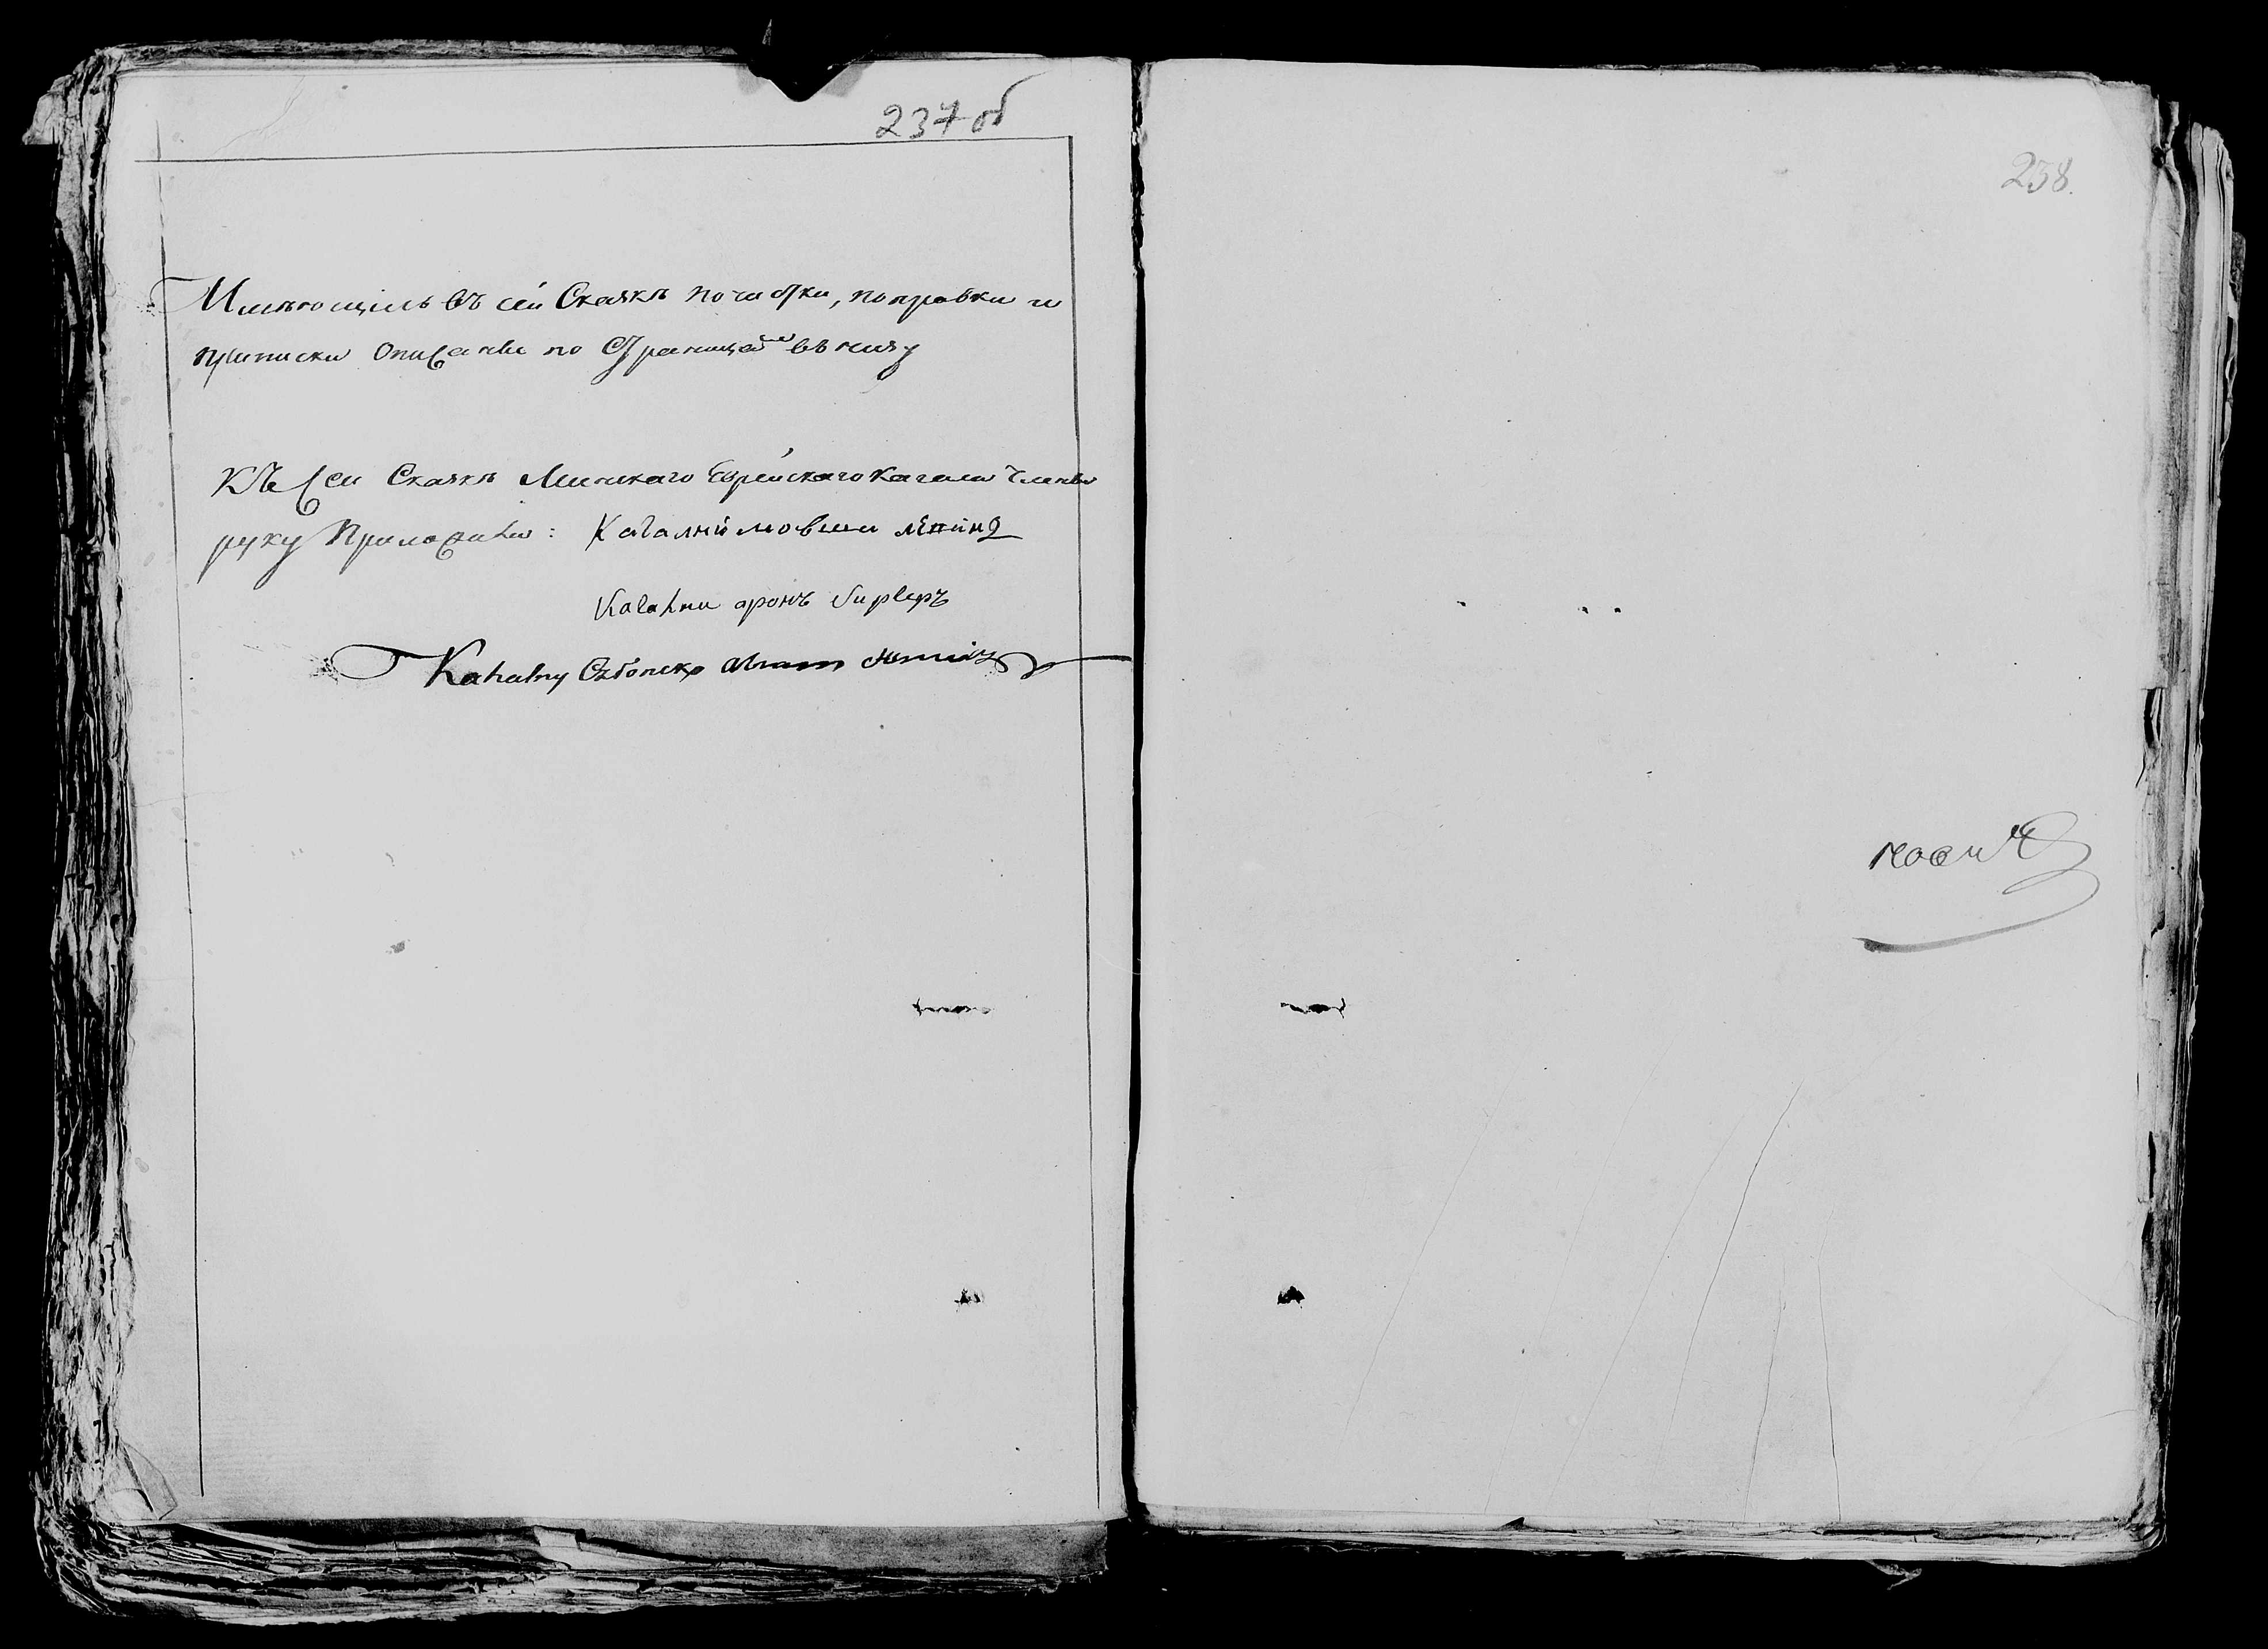 237 об
Имеющіесь въ сей Сказкѣ почистки, поправки и
приписки описаны по Страницамъ въ низу
Къ сей Сказкѣ Минскаго Еврейскаго Кагала Члены
руку Приложили: Кагалнй мовша
Кагални аронъ
Kahalny Członek Abram
238.